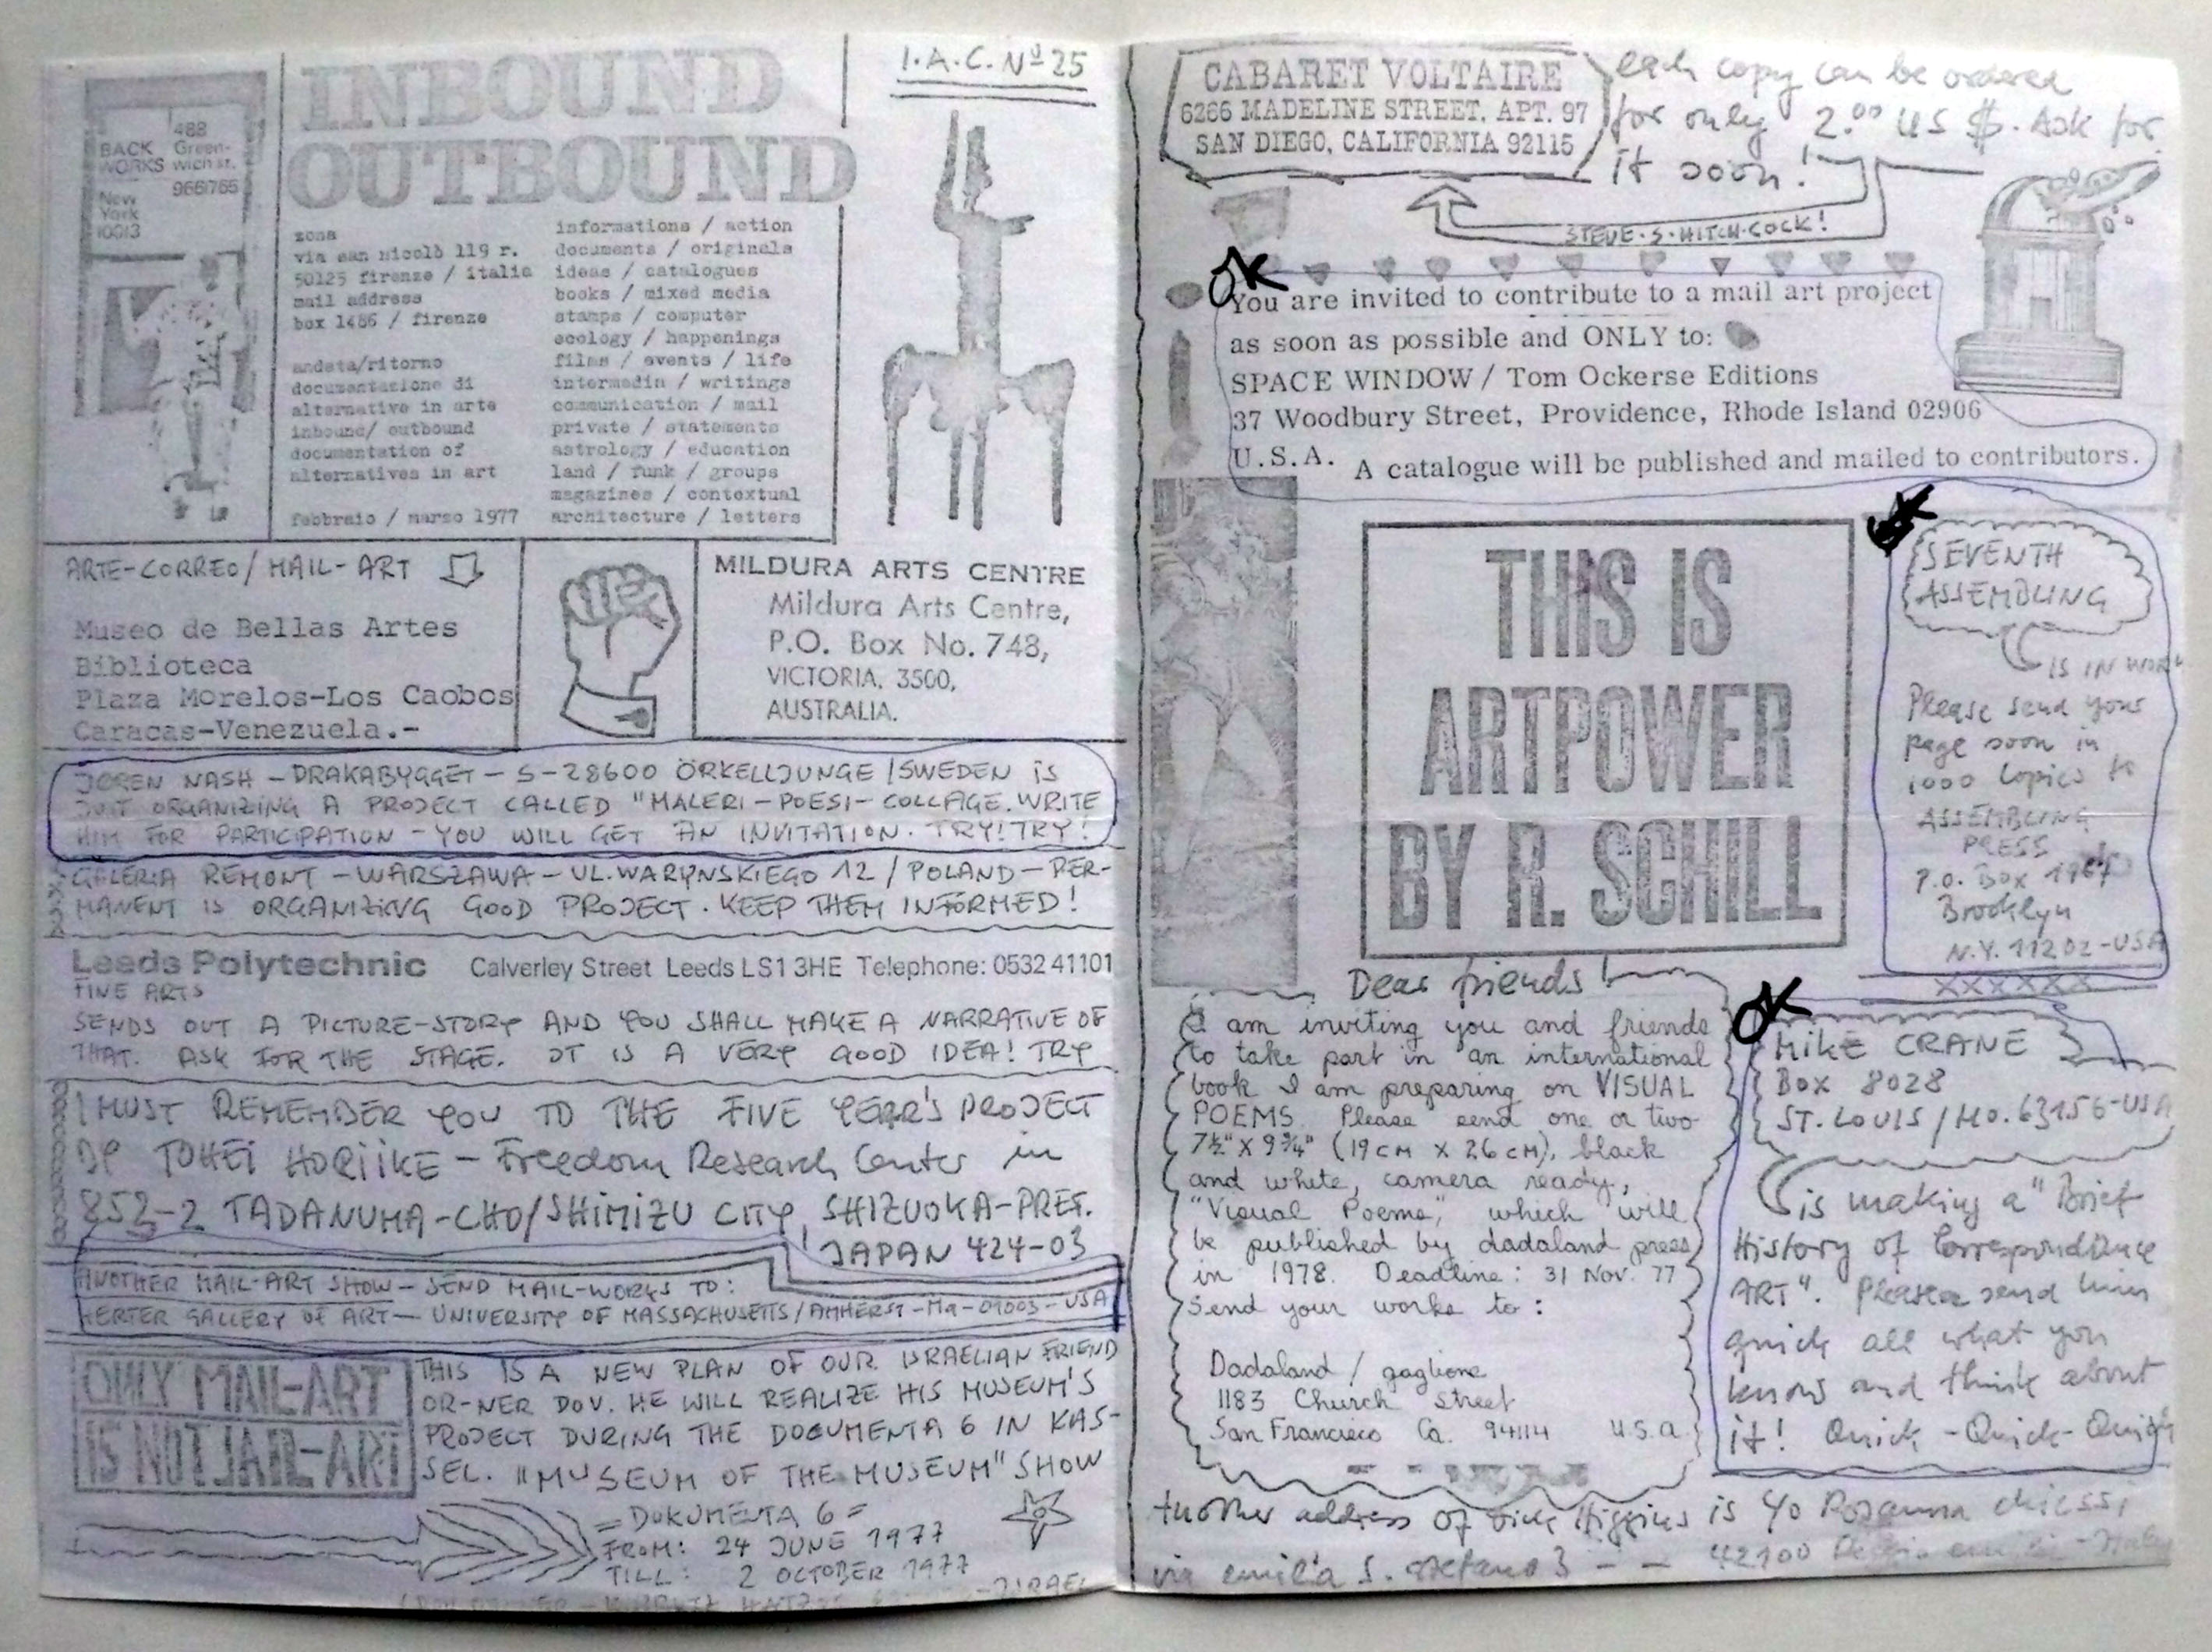 I.A.C. Nº 25
INBOUND
OUTBOUND
BACK
WORKS
488
Green-
wich st.
966|765
New
York
10013
zona
via san nicolò 119 r.
50125 firenze / italia
mail address
box 1486 / firenze
andata/ritorno
documentazione di
alternative in arte
inbound/ outbound
documentation of
alternatives in art
febbraio / marzo 1977
informations / action
documents / originals
ideas / catalogues
books / mixed media
stamps / computer
ecology / happenings
films / events / life
intermedia / writings
communication / mail
private / statements
astrology / education
land / funk / groups
magazines / contextual
architecture / letters
ARTE-CORREO/MAIL-ART
Museo de Bellas Artes
Biblioteca
Plaza Morelos-Los Caobos
Caracas-Venezuela.-
MILDURA ARTS CENTRE
Mildura Arts Centre,
P.O. Box No. 748,
VICTORIA, 3500,
AUSTRALIA.
NASH - DRAKABYGGET - S-28600 ÖRKELLJUNGE / SWEDEN IS
JUST ORGANIZING A PROJECT CALLED "MALERI-POESI-COLLAGE. WRITE
HIM FOR PARTICIPATION - YOU WILL GET AN INVITATION. TRY! TRY!
GALERIA REMONT - WARSZAWA - UL. WARYNSKIEGO 12 / POLAND - PER-
MANENT IS ORGANIZING GOOD PROJECT. KEEP THEM INFORMED!
Leeds Polytechnic Calverley Street Leeds LS1 3HE Telephone: 0532 41101
FINE ARTS
SENDS OUT A PICTURE-STORY AND YOU SHALL MAKE A NARRATIVE OF
THAT. ASK FOR THE STAGE. IT IS A VERY GOOD IDEA! TRY
I MUST REMEMBER YOU TO THE FIVE YEAR'S PROJECT
OF TOHEI HORIIKE - Freedom Research Center in
852-2 TADANUMA-CHO/SHIMIZU CITY, SHIZUOKA-PREF.
JAPAN 424-03
ANOTHER MAIL-ART SHOW - SEND MAIL-WORKS TO:
HERTER GALLERY OF ART - UNIVERSITY OF MASSACHUSETTS/AMHERST-Ma-01003-USA
ONLY MAIL-ART
IS NOT JAIL-ART
THIS IS A NEW PLAN OF OUR ISRAELIAN FRIEND
OR-NER DOV. HE WILL REALIZE HIS MUSEUM'S
PROJECT DURING THE DOCUMENTA 6 IN KAS-
SEL. "MUSEUM OF THE MUSEUM" SHOW
= DOKUMENTA 6 =
FROM: 24 JUNE 1977
TILL: 2 OCTOBER 1977
-ISRAEL
CABARET VOLTAIRE
6266 MADELINE STREET, APT. 97
SAN DIEGO, CALIFORNIA 92115
each copy can be ordered
for only 2.00 US $. Ask for
it soon!
STEVE·S·HITCH·COCK!
OK
You are invited to contribute to a mail art project
as soon as possible and ONLY to:
SPACE WINDOW / Tom Ockerse Editions
37 Woodbury Street, Providence, Rhode Island 02906
U.S.A. A catalogue will be published and mailed to contributors.
THIS IS
ARTPOWER
BY R. SCHILL
SEVENTH
ASSEMBLING
IS IN WORK
Please send your
page soon in
1000 Copies to
ASSEMBLING
PRESS
P.O. Box
Brooklyn
N.Y. 11202-USA
XXXXXX
Dear friends!
I am inviting you and friends
to take part in an international
book I am preparing on VISUAL
POEMS. Please send one or two
7½" X 9¾" (19 CM X 26 CM), black
and white, camera ready,
"Visual Poems," which will
be published by dadaland press
in 1978. Deadline: 31 Nov. 77
Send your works to:
Dadaland / gaglione
1183 Church street
San Francisco Ca. 94114 U.S.A.
OK
MIKE CRANE
BOX 8028
ST. LOUIS / MO. 63156-USA
is making a "Brief
History of Correspondence
ART". Please send him
quick all what you
know and think about
it! Quick - Quick - Quick
Another address of Dick Higgins is c/o Rosanna chiessi
via emilia S. stefano 3 - - 42100 Reggio emilia - Italy